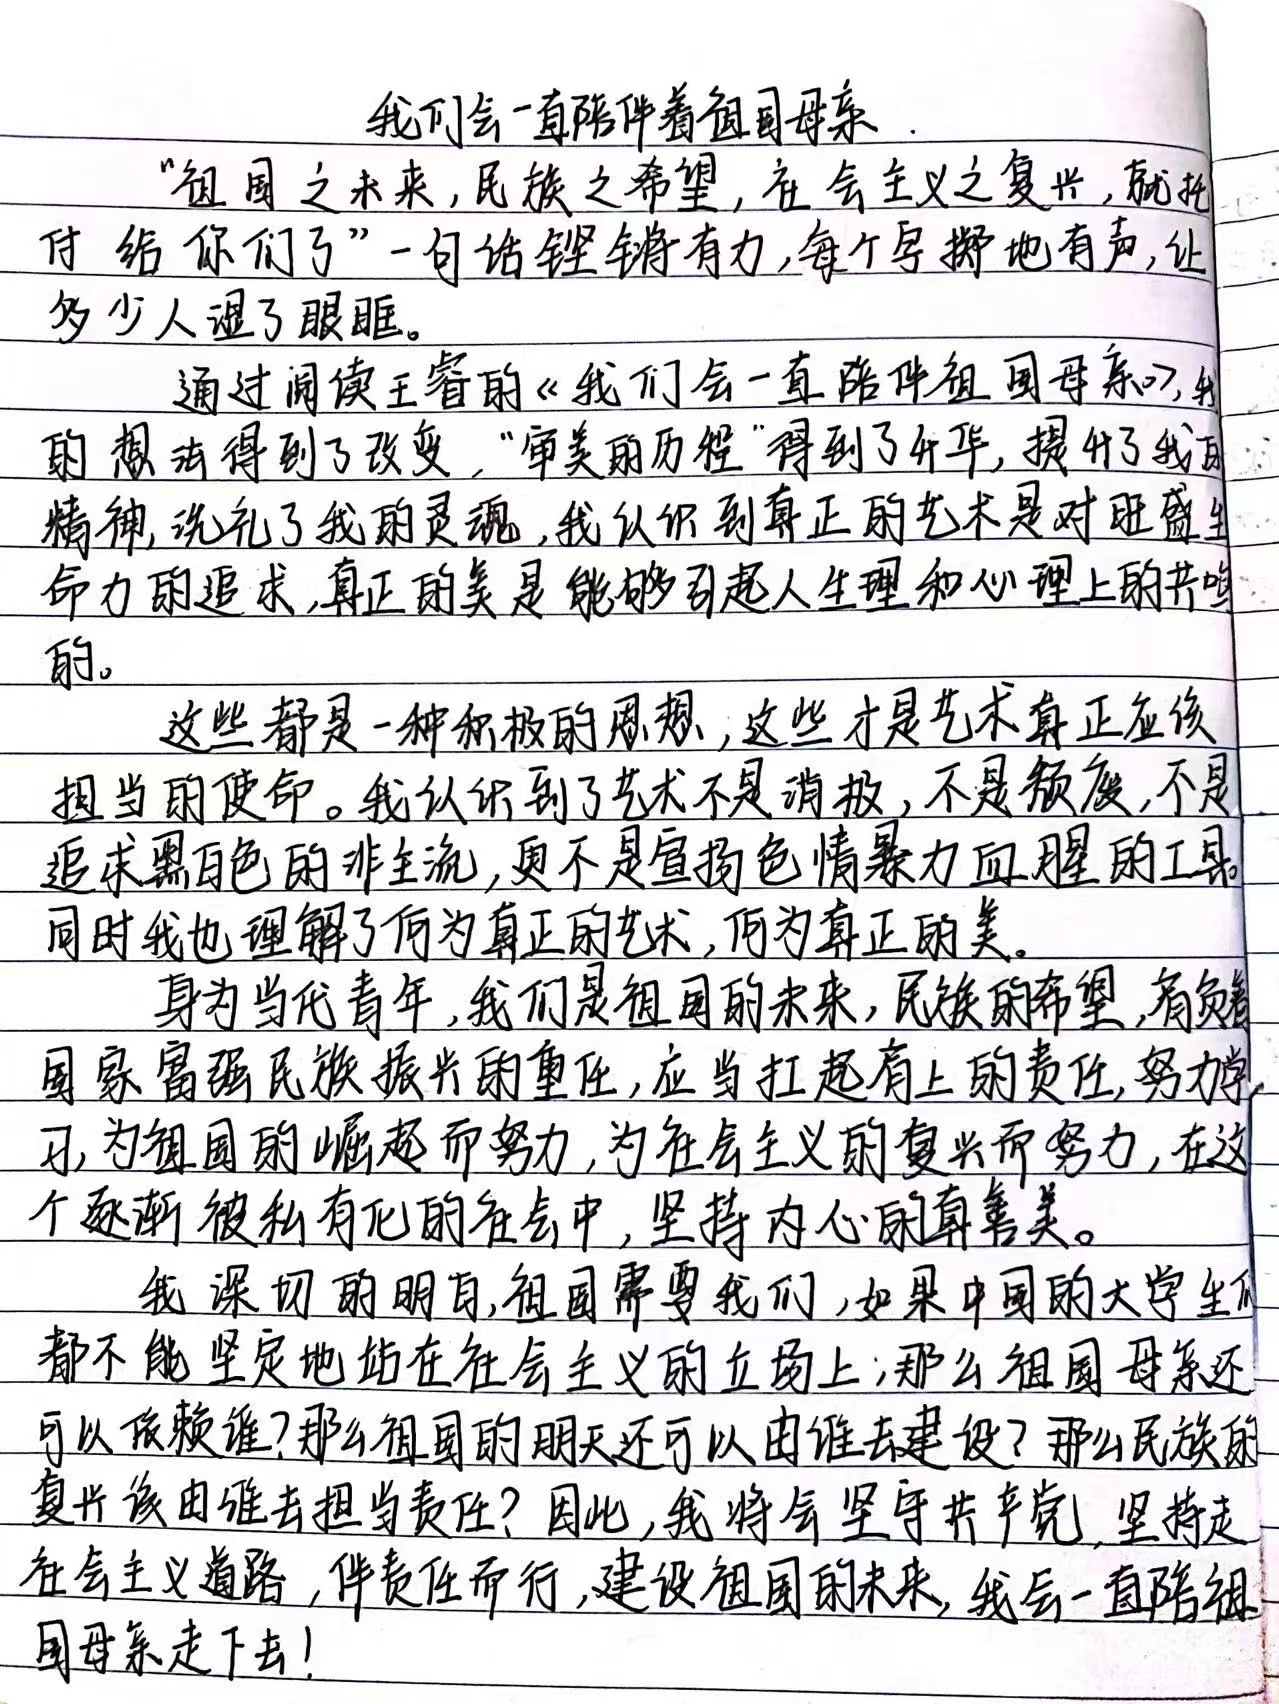 我们会一直陪伴着祖国母亲
“祖国之未来,民族之希望,社会主义之复兴,就托
付给你们了”一句话铿锵有力,每个字掷地有声,让
多少人湿了眼眶。
通过阅读王睿的《我们会一直陪伴祖国母亲》,我
的想法得到了改变,“审美的历程”得到了升华,提升了我的
精神,洗礼了我的灵魂,我认识到真正的艺术是对旺盛生
命力的追求,真正的美是能够引起人生理和心理上的共鸣
的。
这些都是一种积极的思想,这些才是艺术真正应该
担当的使命。我认识到了艺术不是消极,不是颓废,不是
追求黑白色的非主流,更不是宣扬色情暴力血腥的工具。
同时我也理解了何为真正的艺术,何为真正的美。
身为当代青年,我们是祖国的未来,民族的希望,肩负着
国家富强民族振兴的重任,应当扛起肩上的责任,努力学
习,为祖国的崛起而努力,为社会主义的复兴而努力,在这
个逐渐被私有化的社会中,坚持内心的真善美。
我深切的明白,祖国需要我们,如果中国的大学生们
都不能坚定地站在社会主义的立场上;那么祖国母亲还
可以依赖谁?那么祖国的明天还可以由谁去建设?那么民族的
复兴该由谁去担当责任?因此,我将会坚守共产党,坚持走
社会主义道路,伴责任而行,建设祖国的未来,我会一直陪祖
国母亲走下去!